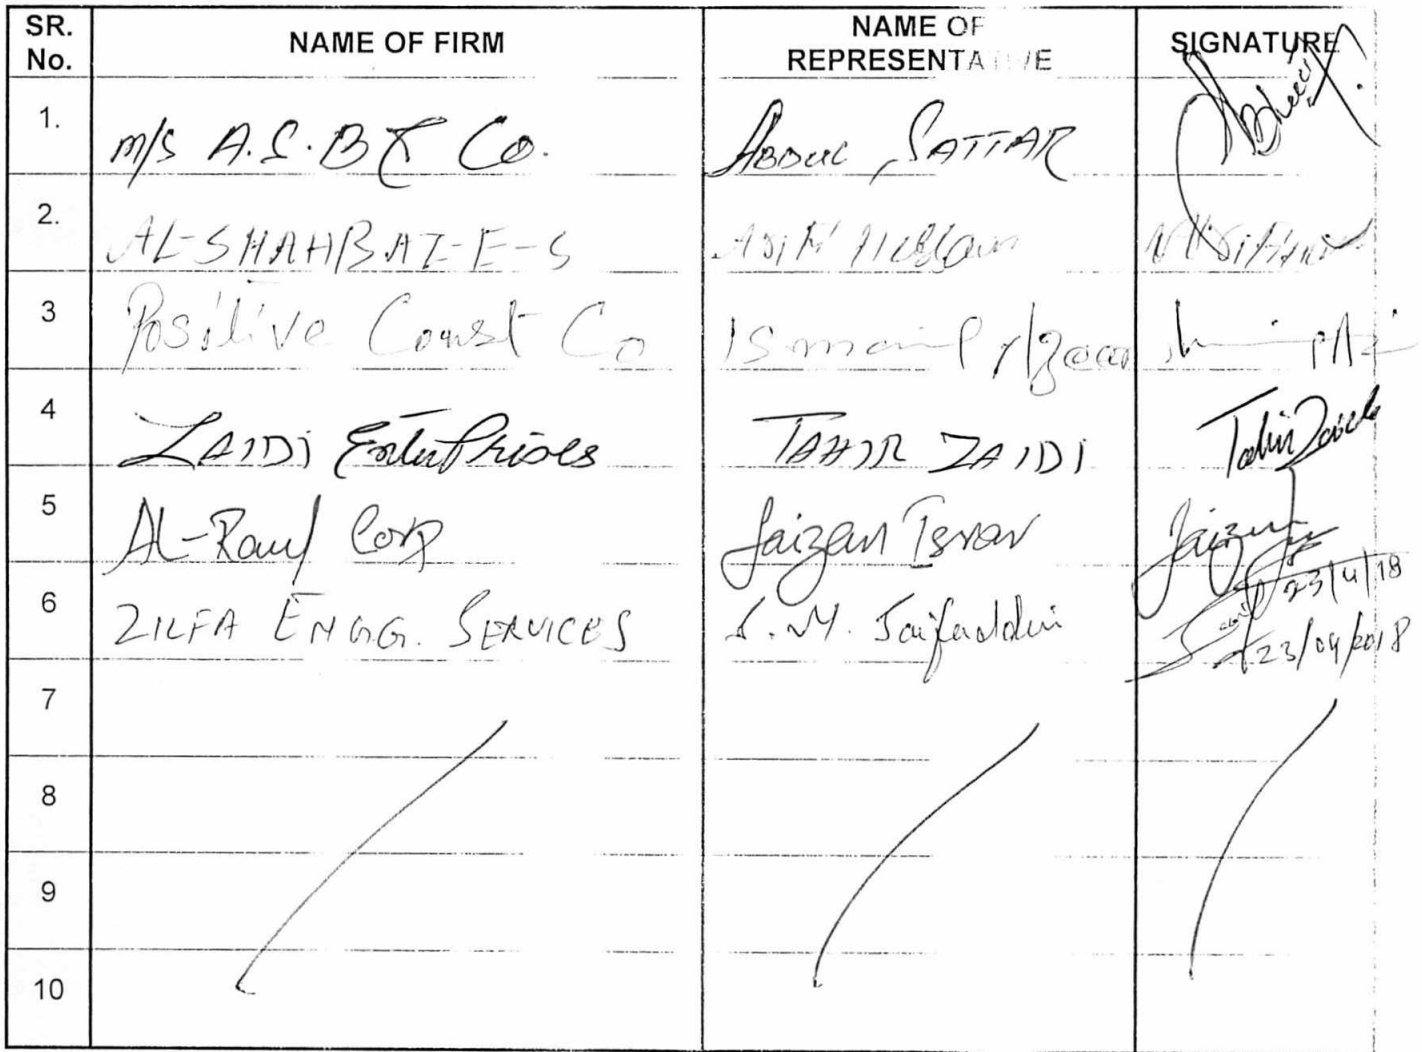 SR. No. NAME OF FIRM NAME OF REPRESENTATIVE SIGNATURE
1. M/S A.S.B & Co. ABDUL SATTAR
2. AL-SHAHBAZ-E-S ASIF Hussain
3 Positive Const Co Ismail
4 ZAIDI EnterPrises TAHIR ZAIDI Tahir Zaidi
5 AL-Rauf Corp Faizan Israr Faizan 23/4/18
6 ZILFA ENGG. SERVICES S.M. Saifuddin 23/04/2018
7
8
9
10